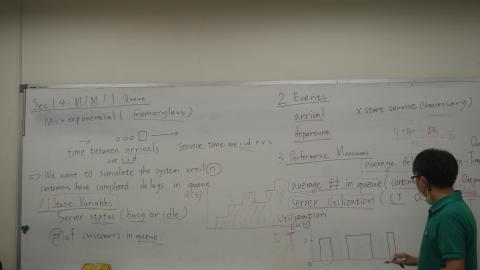 Sec 1.4 M/M/1 Queue
M => exponential ( memoryless )
time between arrivals
are iid
Service time are iid r.v.s
=> We want to simulate the system until n
customers have completed delays in queue
1 State Variables
Server status ( busy or idle )
# of customers in queue
Q(t)
2 Events
arrival
departure
x start service (unnecessary)
3. Performance Measures
average
average # in queue
Server Utilization (
Utilization
B(t)
1